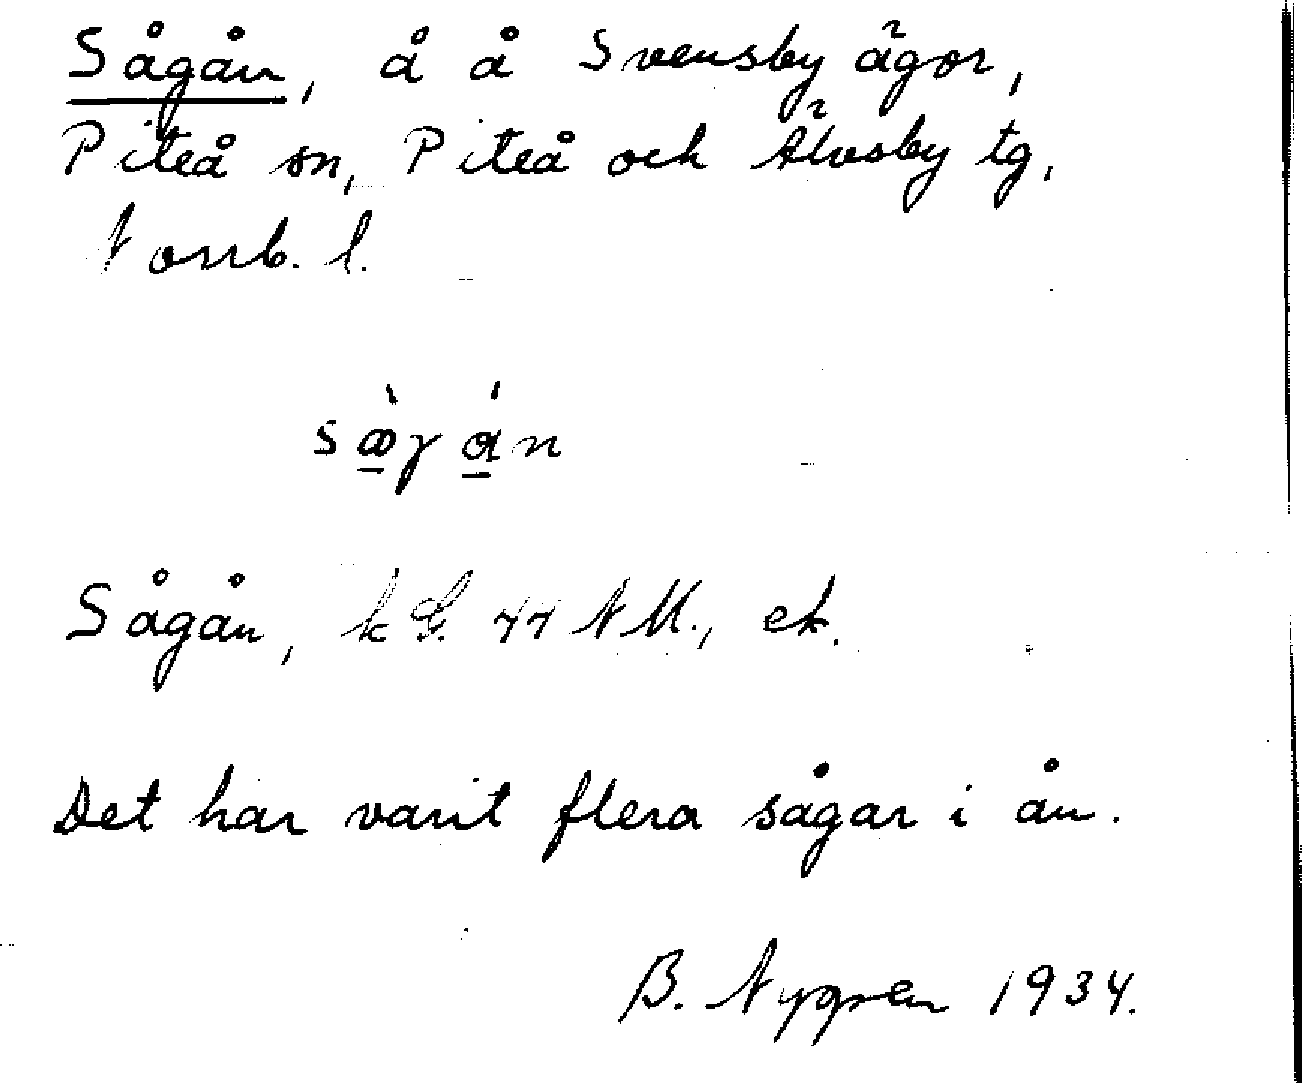 Sågån, å å Svensby ägor,
Piteå sn, Piteå och Älvsby tg,
Norrb. l.
Sågån, kG. 44 NM., ek.
Det har varit flera sågar i ån.
B. Nygren 1934.